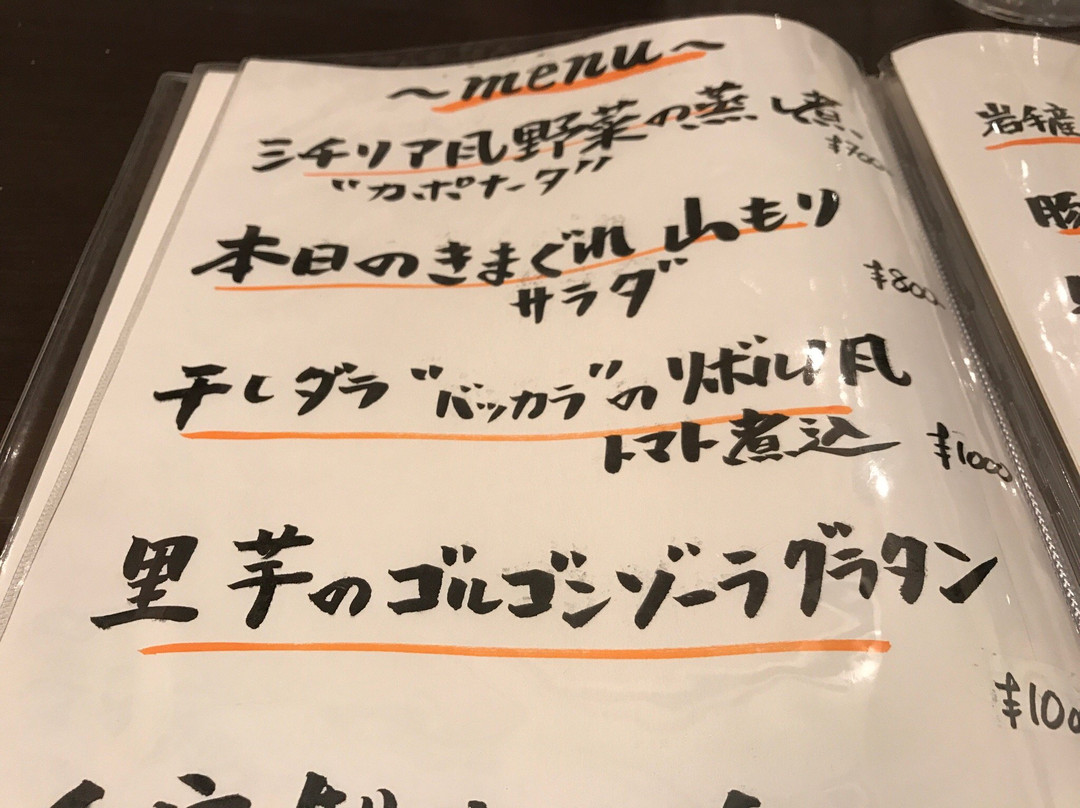 ～menu～
シチリア風野菜の蒸し煮
¥700
"カポナータ"
本日のきまぐれ山もり
サラダ
¥800
干しダラ"バッカラ"のリボルノ風
トマト煮込
¥1000
里芋のゴルゴンゾーラグラタン
¥100
岩手産
豚